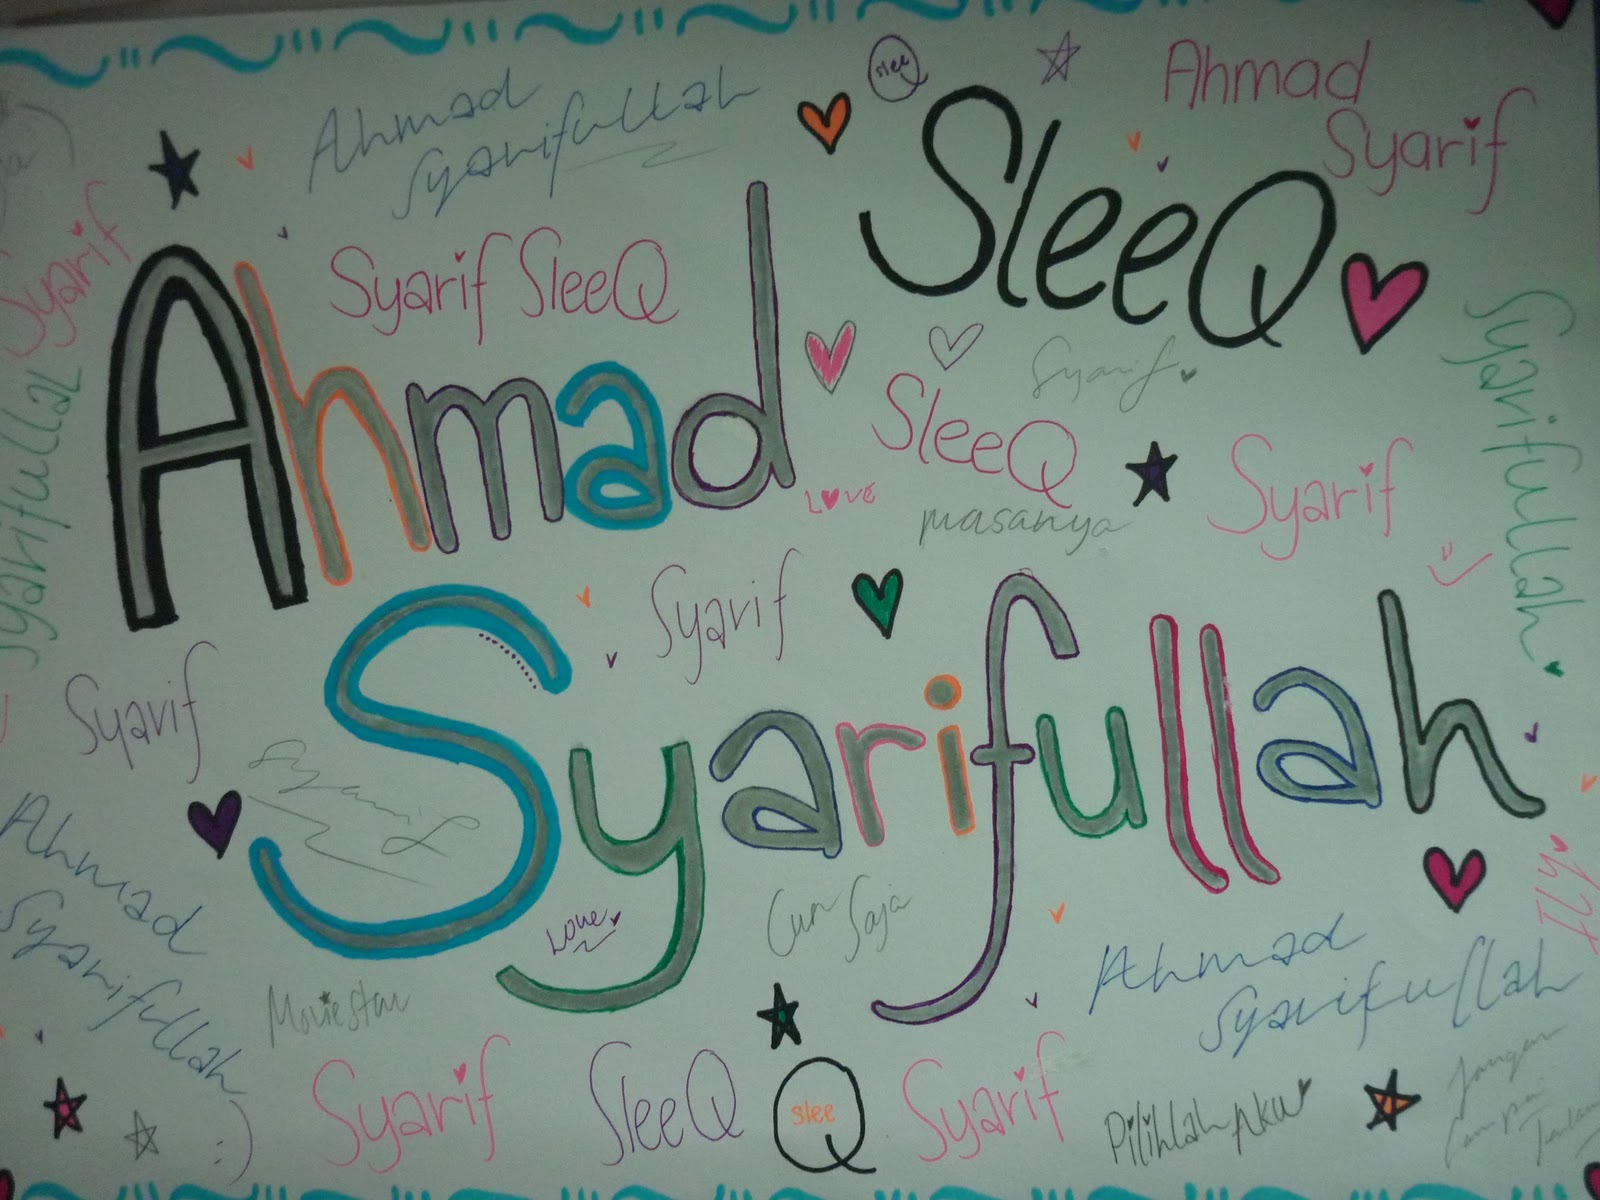 slee
Ahmad
Syarif
Ahmad
Syarifullah
SleeQ
Syarif
Syarif SleeQ
Ahmad
Syarif
SleeQ
Syarif
Love
masanya
Syarifullah
Syarifullah
Syarif
Syarif
Syarifullah
Ahmad
Syarifullah
Love
Cun
Saja
ILY
Ahmad
Syarifullah
Moviestar
Syarif
SleeQ
slee
Q
Syarif
Pilihlah Aku
Jangan
:)